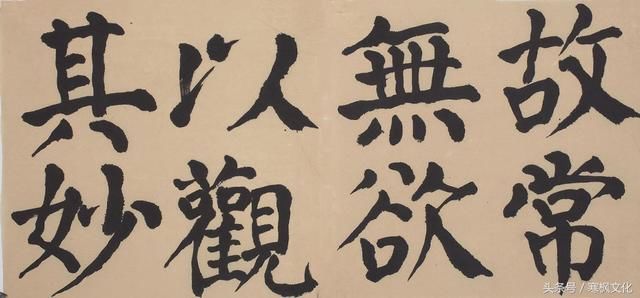 故常
無欲
以觀
其妙
头条号/寒枫文化